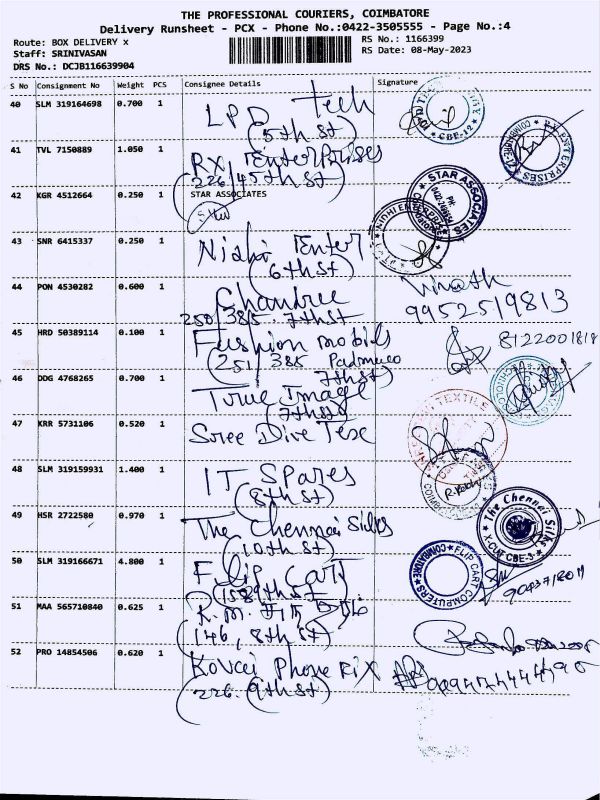 THE PROFESSIONAL COURIERS, COIMBATORE
Delivery Runsheet - PCX - Phone No.:0422-3505555 - Page No.:4
Route: BOX DELIVERY x
RS No.: 1166399
Staff: SRINIVASAN
RS Date: 08-May-2023
DRS No.: DCJB116639904
S No Consignment No Weight PCS Consignee Details Signature
40 SLM 319164698 0.700 1 LPD Tech
(5th St)
41 TVL 7150889 1.050 1 RX Enterprises
226/45th St)
42 KGR 4512664 0.250 1 STAR ASSOCIATES
STAR ASSOCIATES
43 SNR 6415337 0.250 1 Nidhi Enter
(6th St)
44 PON 4530282 0.600 1 Chandree
250/385. 7th St
Vinoth
9952519813
45 HRD 50389114 0.100 1 Fashion mobils
(251/385
7th St)
8122001818
46 DDG 4768265 0.700 1 True Image
(7th St)
47 KRR 5731106 0.520 1 Sree Dive Tex
TEXTILE
48 SLM 319159931 1.400 1 IT Spares
(8th St)
49 HSR 2722580 0.970 1 The Chennai Silks
(10th St)
The Chennai Silks
X-CUT CBE-3
50 SLM 319166671 4.800 1 Flip Cart
FLIP CART COMPUTERS
COIMBATORE
51 MAA 565710840 0.625 1 K.m.
(146, 8th St)
52 PRO 14854506 0.620 1 Kovai Phone FiX
(226. 9th St)